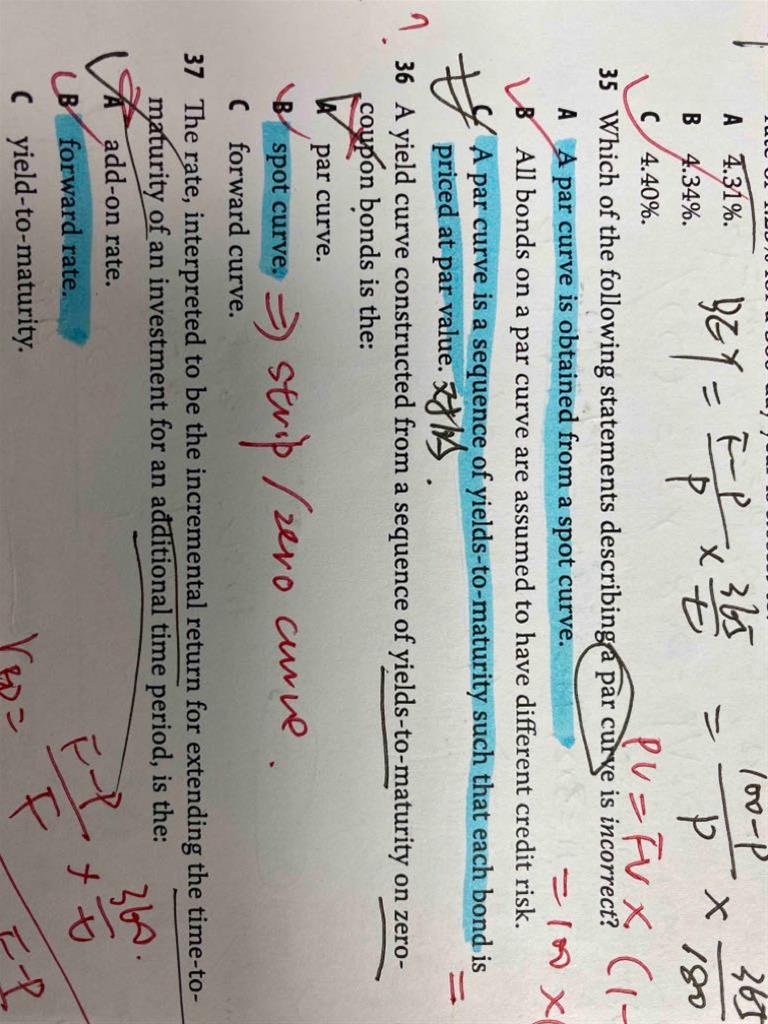 A 4.31%.
B 4.34%.
C 4.40%.
BEY = F-P / P × 365 / t = 100-P / P × 365 / 180
PV = FV × (1-
= 100 ×(
35 Which of the following statements describing a par curve is incorrect?
A A par curve is obtained from a spot curve.
B All bonds on a par curve are assumed to have different credit risk.
C A par curve is a sequence of yields-to-maturity such that each bond is
priced at par value.
=
?
36 A yield curve constructed from a sequence of yields-to-maturity on zero-
coupon bonds is the:
A par curve.
B spot curve. ⇒ strip / zero curve.
C forward curve.
37 The rate, interpreted to be the incremental return for extending the time-to-
maturity of an investment for an additional time period, is the:
A add-on rate.
B forward rate.
C yield-to-maturity.
F-P / F × 360 / t
F-P